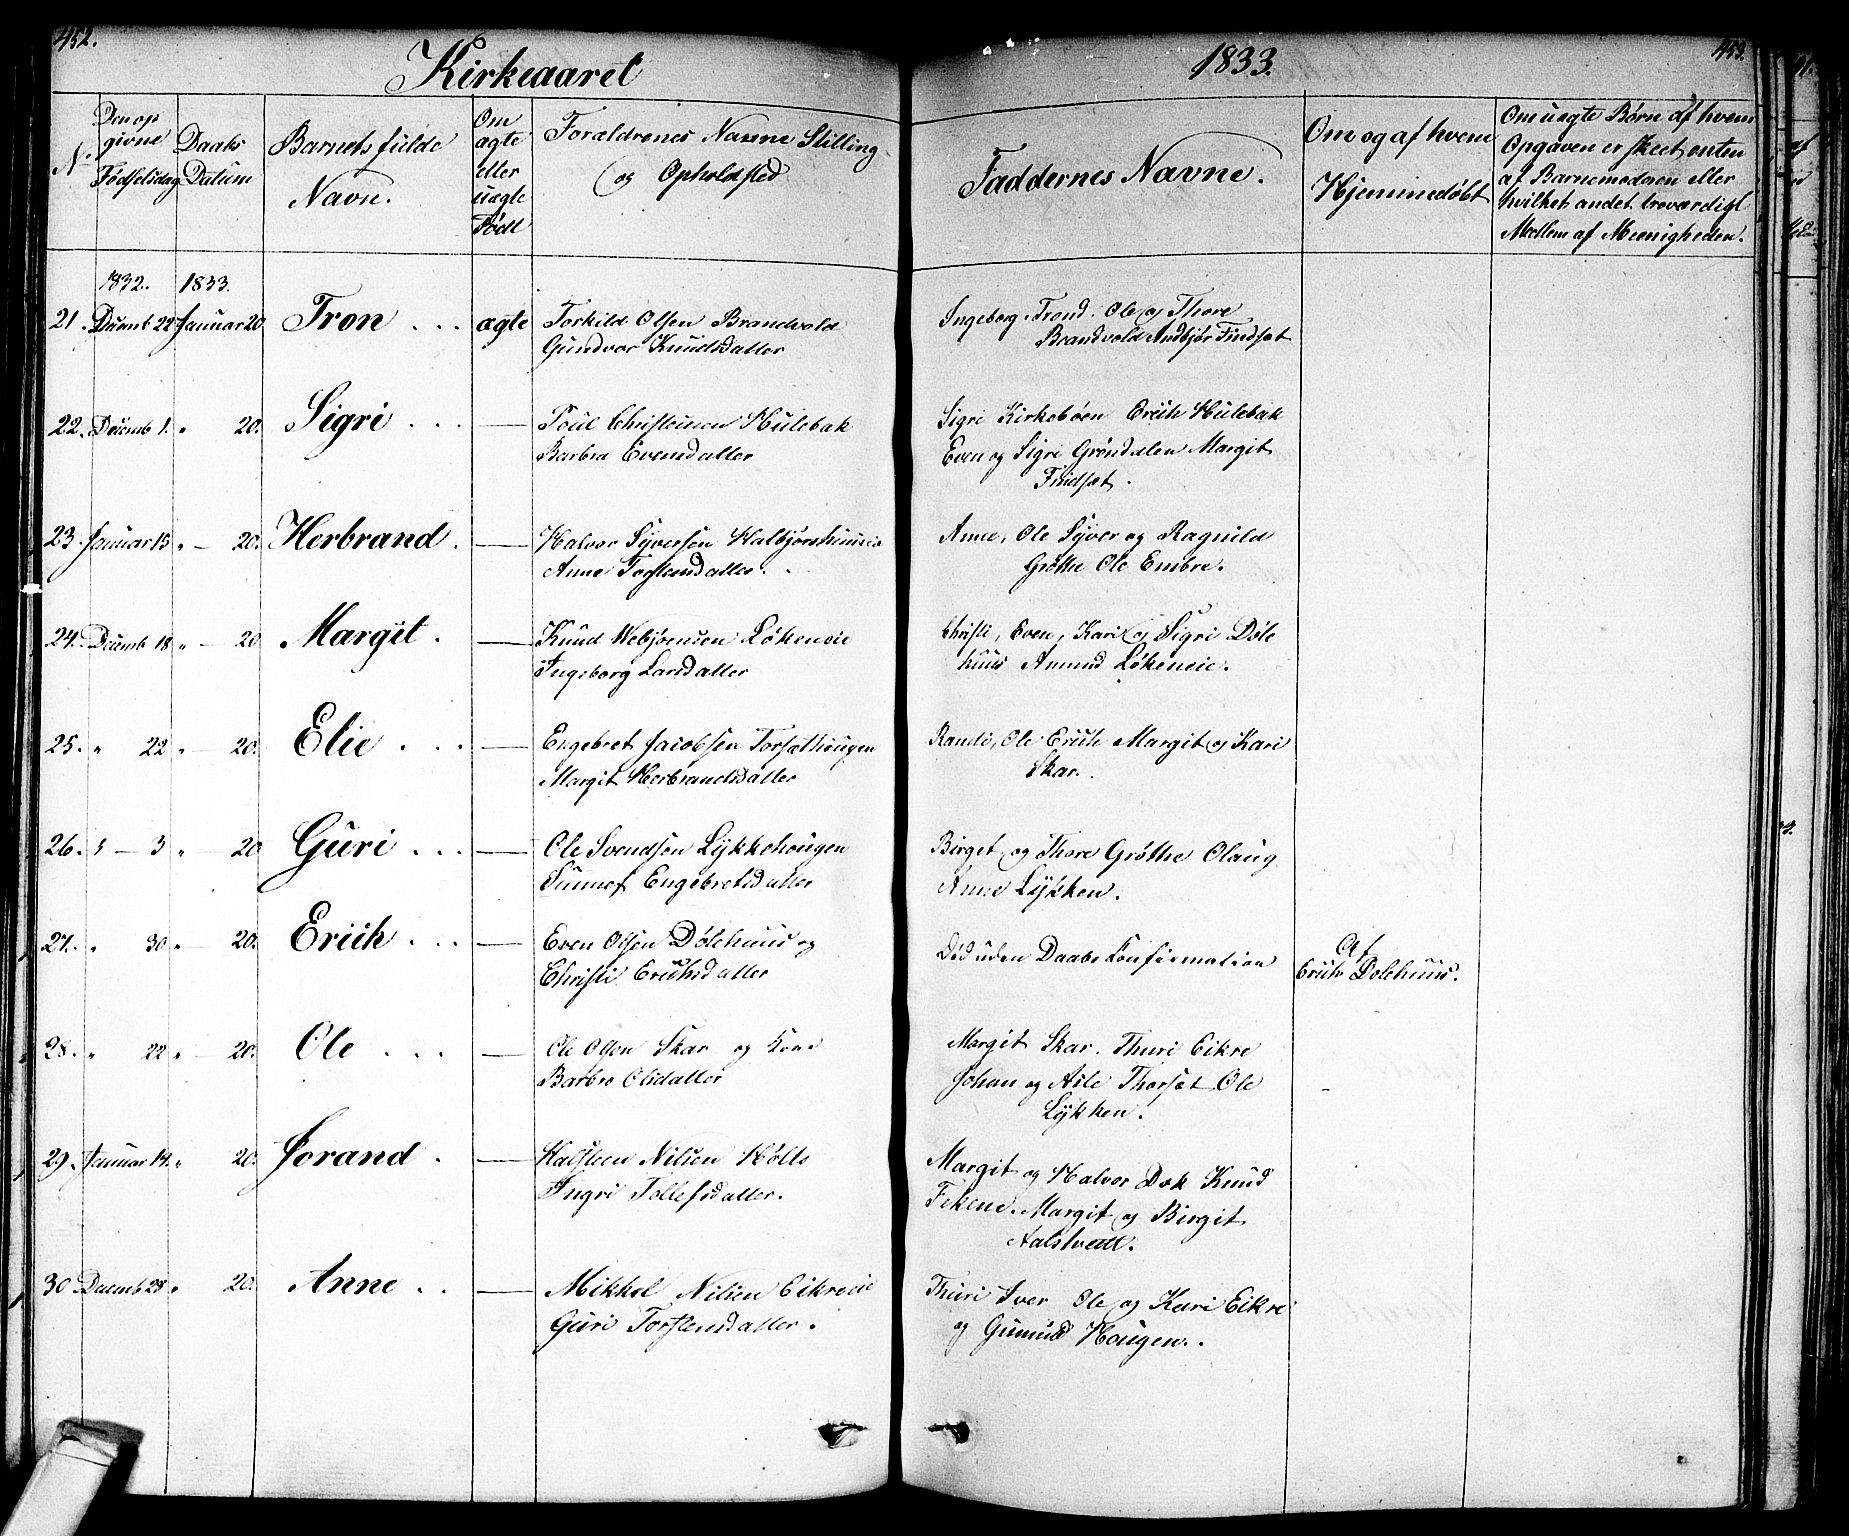 452.
Kirkeaaret
1833.
453.
N.
Den op
givne
Fødselsdag
Daabs
Datum
Barnets fulde
Navn.
Om
ægte
eller
uægte
Født
Forældrenes Navne Stilling
og Opholdsted
Faddernes Navne.
Om og af hvem
Hjemmedøbt
Om uægte Børn af hvem
Opgaven er skeet enten
af Barnemoderen eller
hvilket andet troværdigt
Medlem af Meenigheden.
1832. 1833.
21. Decemb 22 Januar 20. Tron . . . ægte Torkild Olsen Brandvold
Gundvor Knudsdatter
Ingeborg, Trond, Ole og Thore
Brandvold Andbjør Findset
22. Decemb 1. " 20. Sigri . . . — Poul Christensen Hulebak
Barbra Evensdatter
Sigri Kirkebøen Erich Hulebak
Even og Sigri Grøndalen Margit
Findset.
23. Januar 15 " — 20. Herbrand . — Halvor Syversen
Anne Torstensdatter.
Anne, Ole Syver og Ragnild
Grøthe Ole Embre.
24. Decemb 18 " — 20 Margit . — Knud Webjørnsen Løkeneie
Ingeborg Larsdatter
Christi, Even, Kari og Sigri Døle
huus Amund Løkeneie.
25. " 22 " — 20. Elie . . . — Engebret Jacobsen Torsæthougen
Margit Herbrandsdatter
Randi, Ole Erich Margit og Kari
Skar.
26. " — 3 " — 20 Guri . . . — Ole Svendsen Lykkehougen
Sunnef Engebretsdatter
Birget og Thore Grøthe Olaug
Anne Lykken.
27. " 30 " — 20. Erich . . . — Even Olsen Dølehuus og
Christi Erichsdatter
Død uden Daabs Confirmation
Af
Erich Dølehuus.
28. " 22 " — 20. Ole . . . — Ole Olsen Skar og Kone
Barbro Olsdatter
Margit Skar. Thuri Eikre
Johan og Asle Thorset Ole
Lykken.
29. Januar 14. " 20. Jorand . — Halsteen Nilsen Hølto
Ingri Tollefsdatter.
Margit og Halvor Dok Knud
Fekene. Margit og Birgit
Aalstveit.
30 Decemb 28 " 20. Anne . . — Mikkel Nilsen Eikreeie
Guri Torstensdatter.
Thuri Iver Ole og Kari Eikre
og Gumund Hougen.